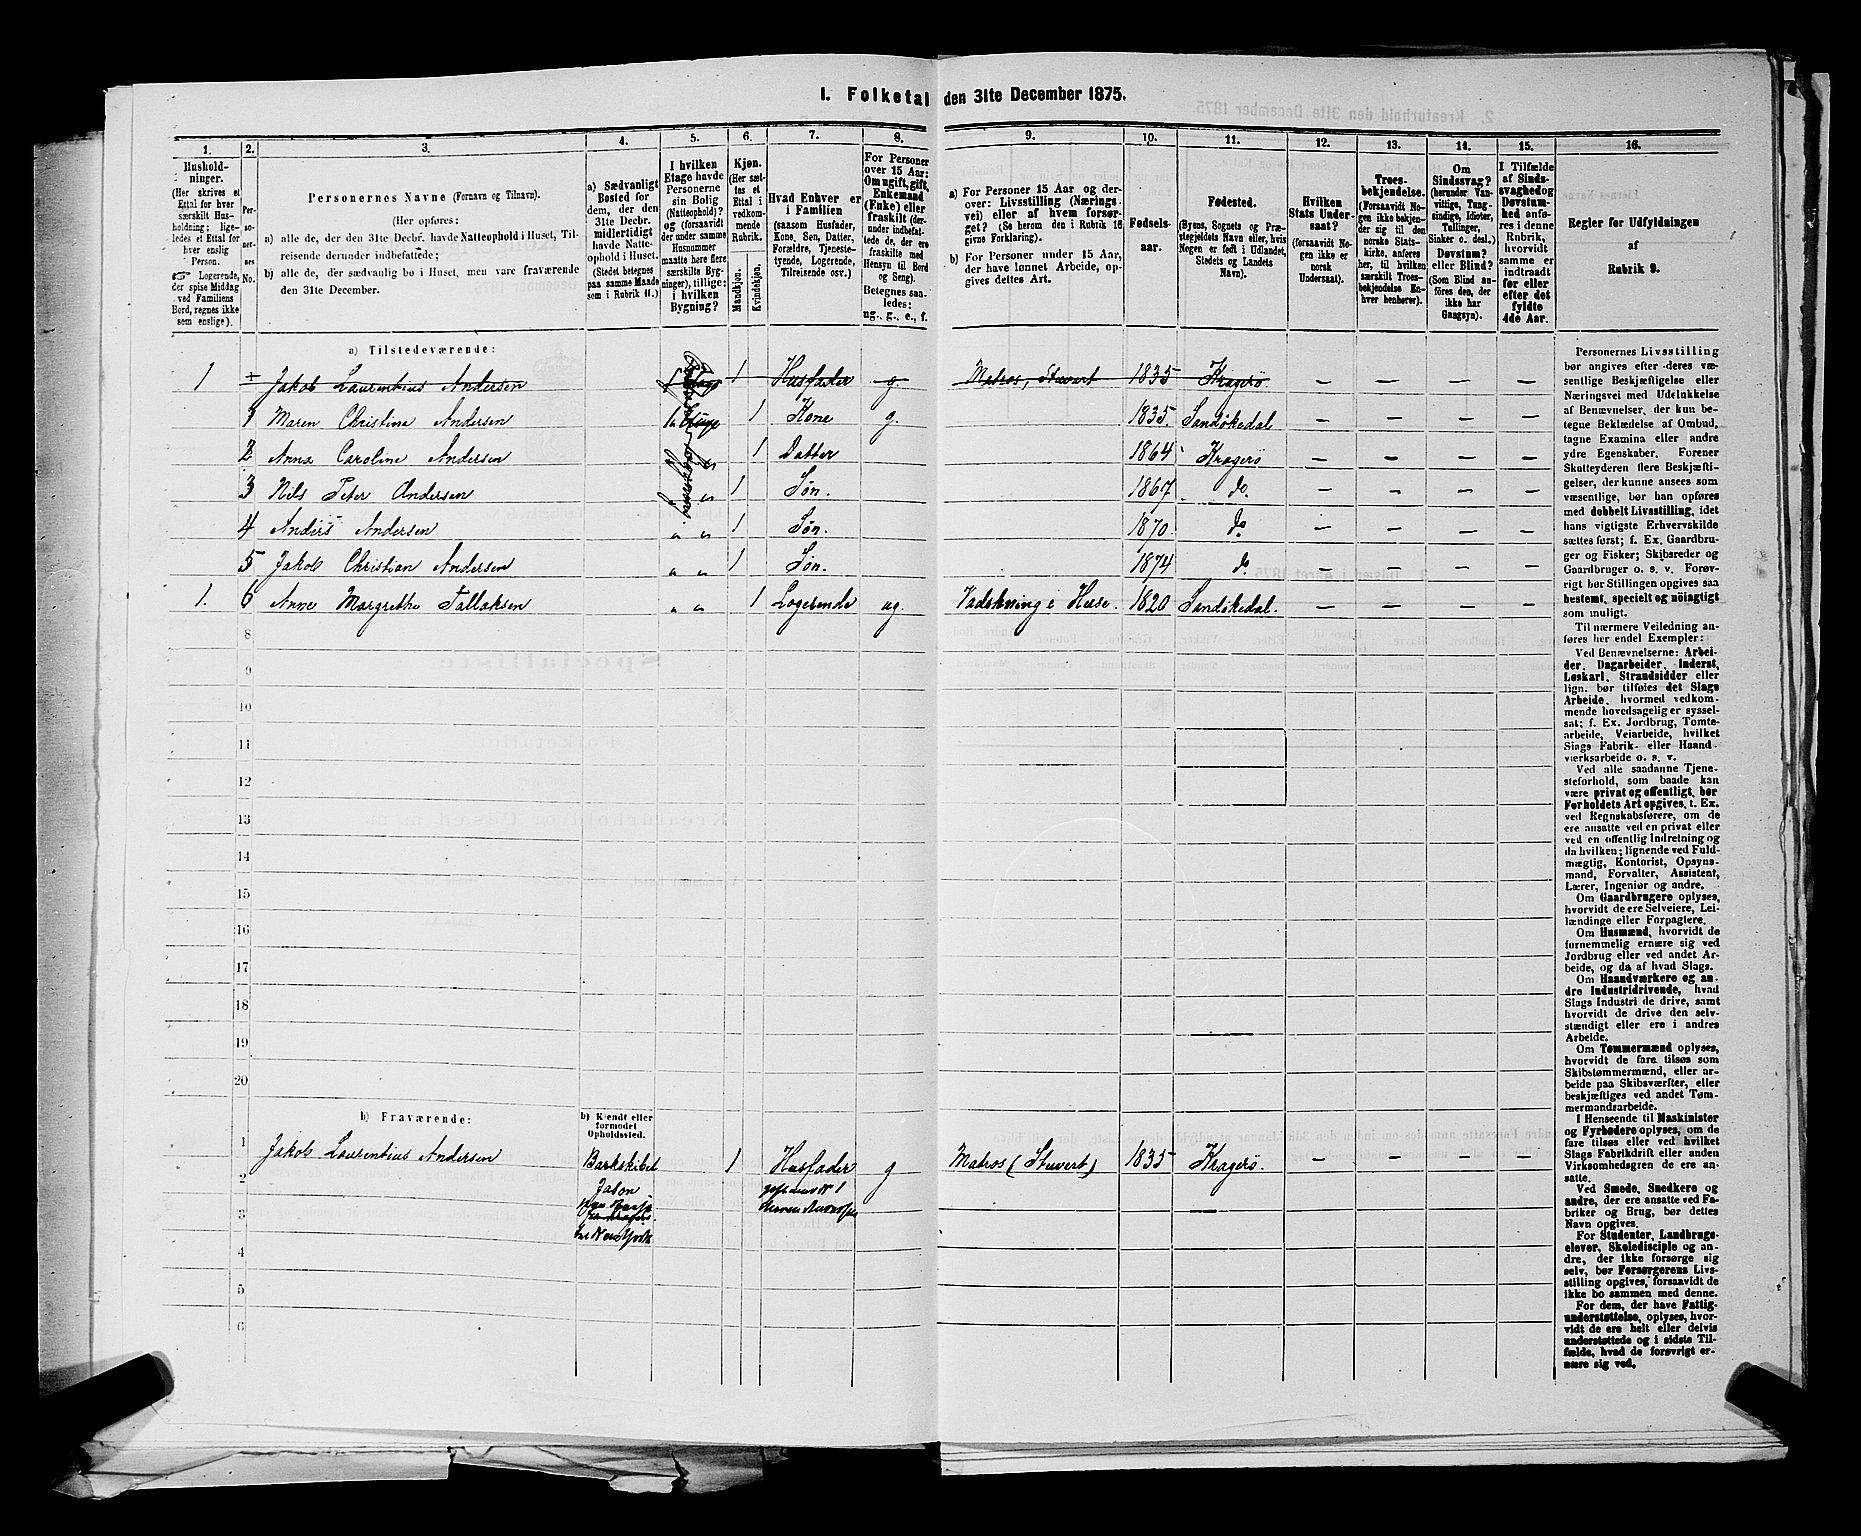 I. Folketal den 31te December 1875.
1. 2. 3. 4. 5. 6. 7. 8. 9. 10. 11. 12. 13. 14. 15. 16.
Husholdninger.
(Her skrives et
Ettal for hver
særskilt Husholdning;
ligeledes et Ettal for
hver enslig
Person.
☞ Logerende,
der spise Middag
ved Familiens
Bord, regnes ikke
som enslige).
Personernes No.
Personernes Navne (Fornavn og Tilnavn).
(Her opføres:
a) alle de, der den 31te Decbr. havde Natteophold i Huset, Tilreisende
derunder indbefattede;
b) alle de, der sædvanlig bo i Huset, men vare fraværende
den 31te December.
a) Sædvanligt
Bosted for
dem, der den
31te Decbr.
midlertidigt
havde Natteophold
i Huset.
(Stedet betegnes
paa samme Maade
som i Rubrik 11.)
I hvilken
Etage havde
Personerne
sin Bolig
(Natteophold)?
og (forsaavidt
der under samme
Husnummer
maatte høre flere
særskilte Bygninger),
tillige:
i hvilken
Bygning?
Kjøn.
(Her sættes
et
Ettal i
vedkommende
Rubrik.
Mandkjøn.
Kvindekjøn.
Hvad Enhver er
i Familien
(saasom Husfader,
Kone, Søn, Datter,
Forældre, Tjenestetyende,
Logerende,
Tilreisende osv.)
For Personer
over 15 Aar:
Om ugift, gift,
Enkemand
(Enke) eller
fraskilt (derunder
indbefattede
de, der ere
fraskilte med
Hensyn til Bord
og Seng).
Betegnes saaledes:
ug., g., e., f.
a) For Personer 15 Aar og derover:
Livsstilling (Næringsvei)
eller af hvem forsørget?
(Se herom den i Rubrik 16
givne Forklaring).
b) For Personer under 15 Aar,
der have lønnet Arbeide, opgives
dettes Art.
Fødselsaar.
Fødested.
(Byens, Sognets og Præstegjeldets
Navn eller, hvis
Nogen er født i Udlandet,
Stedets og Landets
Navn).
Hvilken
Stats Undersaat?
(forsaavidt Nogen
ikke er
norsk
Undersaat).
Troesbekjendelse.
(Forsaavidt Nogen
ikke bekjender
sig til den
norske Statskirke,
anføres
her, til hvilken
særskilt Troesbekjendelse
Enhver
henhører).
Om
Sindssvag?
(herunder Vanvittige,
Tungsindige,
Idioter,
Tullinger,
Sinker o. desl.)
Døvstum?
eller Blind?
(Som Blind anføres
den, der
ikke har
Gangsyn).
I Tilfælde
af Sindssvaghed og
Døvstumhed
anføres
i denne
Rubrik,
hvorvidt
samme er
indtraadt
før eller
efter det
fyldte
4de Aar.
Regler for Udfyldningen
af
Rubrik 9.
a) Tilstedeværende:
1 Jakob Laurentius Andersen 1 Husfader g. Matros, Stuvert 1835 Kragerø. — — — —
1 Maren Christine Andersen 1 Kone g. 1835. Sandøkedal — — — —
2 Anna Caroline Andersen 1 Datter 1864 Kragerø — — — —
3 Nils Peter Andersen 1 Søn. 1867 do. — — — —
4 Anders Andersen " " 1 Søn. 1870. do. — — — —
5 Jakob Christian Andersen " " 1 Søn. 1874 do. — — — —
1. 6 Anne Margrethe Tallaksen " " 1 Logerende ug. Vadskning i Huse. 1820 Sandøkedal. — — — —
8
9
10
11
12
13
14
15
16
17
18
19
20
b) Fraværende:
b) Kjendt eller
formodet
Opholdssted.
1 Jakob Laurentius Andersen Barkskibet 1 Husfader g Matros (Stuvert) 1835 Kragerø. — — — —
2 Jason
3
4
5
6
Personernes Livsstilling
bør angives efter deres væsentlige
Beskjæftigelse eller
Næringsvei med Udelukkelse
af Benævnelser, der kun betegne
Beklædelse af Ombud,
tagne Examina eller andre
ydre Egenskaber. Forener
Skatteyderen flere Beskjæftigelser,
der kunne ansees som
væsentlige, bør han opføres
med dobbelt Livsstilling, idet
hans vigtigste Erhvervskilde
sættes først; f. Ex. Gaardbruger
og Fisker; Skibsreder og
Gaardbruger o. s. v. Forøvrigt
bør Stillingen opgives saa
bestemt, specielt og nöiagtigt
som muligt.
Til nærmere Veiledning anføres
her endel Exempler:
Ved Benævnelserne: Arbeider,
Dagarbeider, Inderst,
Løskarl, Strandsidder eller
lign. bør tilføies det Slags
Arbeide, hvormed vedkommende
hovedsagelig er sysselsat;
f. Ex. Jordbrug, Tomtearbeide,
Veiarbeide, hvilket
Slags Fabrik- eller Haandværksarbeide
o. s. v.
Ved alle saadanne Tjenesteforhold,
som baade kan
være privat og offentligt, bør
Forholdets Art opgives, t. Ex.
ved Regnskabsførere, om de
ere ansatte ved en privat eller
ved en offentlig Indretning og
da hvilken; lignende ved Fuldmægtig,
Kontorist, Opsynsmand,
Forvalter, Assistent,
Lærer, Ingeniør og andre.
Om Gaardbrugere oplyses,
hvorvidt de ere Selveiere, Leilændinge
eller Forpagtere.
Om Husmænd, hvorvidt de
fornemmelig ernære sig ved
Jordbrug eller ved andet Arbeide,
og da af hvad Slags.
Om Haandværkere og andre
Industridrivende, hvad
Slags Industri de drive, samt
hvorvidt de drive den selvstændigt
eller ere i andres
Arbeide.
Om Tømmermænd oplyses,
hvorvidt de fare tilsøs som
Skibstømmermænd, eller arbeide
paa Skibsværfter, eller
beskjæftiges ved andet Tømmermandsarbeide.
I Henseende til Maskinister
og Fyrbødere oplyses, om de
fare tilsøs eller ved hvilket
Slags Fabrikdrift eller anden
Virksomhedsgren de ere ansatte.
Ved Smede, Snedkere og
andre, der ere ansatte ved Fabriker
og Brug, bør dettes
Navn opgives.
For Studenter, Landbrugselever,
Skoledisciple og andre,
der ikke forsørge sig
selv, bør Forsørgerens Livsstilling
opgives, forsaavidt de
ikke bo sammen med denne.
For dem, der have Fattigunderstøttelse,
oplyses, hvorvidt
de ere helt eller delvis
understøttede og i sidste Tilfælde,
hvad de forøvrigt ernære
sig ved.